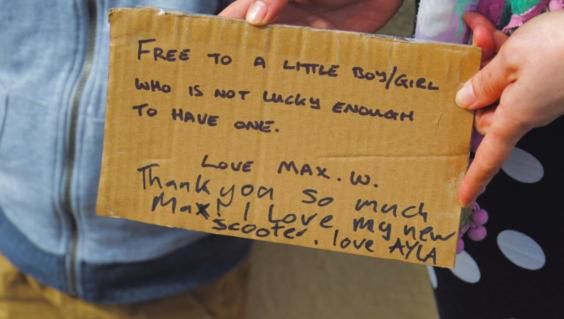 FREE TO A LITTLE BOY/GIRL
WHO IS NOT LUCKY ENOUGH
TO HAVE ONE.
LOVE MAX. W.
Thank you so much
Max! I Love my new
scooter. love AYLA